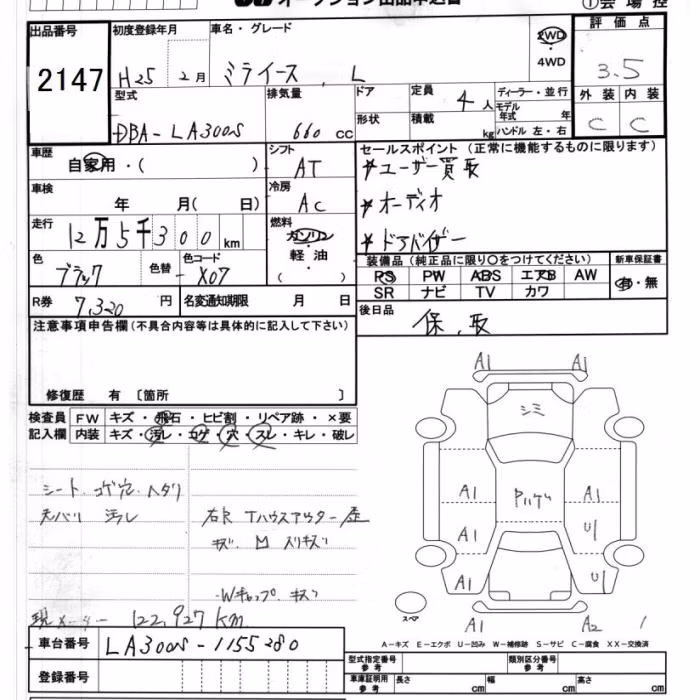 出品番号 初度登録年月 車名・グレード 2WD 評価点
2147 H25 2月 ミライース . L ・4WD 3.5
型式 排気量 ドア 定員 4人 ディーラー・並行 外装 内装
モデル年式 年
DBA-LA300S 660 CC 形状 積載 kg ハンドル 左・右 C C
車歴 シフト セールスポイント (正常に機能するものに限ります)
自家用・( ) AT ユーザー買取
車検 冷房
年 月( 日) AC オーディオ
走行 燃料
12万5千300km ガソリン ドアバイザー
色 色替 色コード 軽油 装備品 (純正品に限り○をつけてください) 新車保証書
ブラック X07 ( ) PS PW ABS エアB AW 有・無
R券 名変通知期限 月 日 SR ナビ TV カワ
7,320円 後日品
注意事項申告欄(不具合内容等は具体的に記入して下さい) 保.取
修復歴 有 [箇所 ]
検査員 FW キズ・飛石・ヒビ割・リペア跡・×要
記入欄 内装 キズ・汚レ・コゲ・穴・スレ・キレ・破レ
A1 A1
シミ
A1 A1
A1 U1
A1 U1
A1 A2
シート.コゲ穴.ヘタリ
天バリ 汚レ
キズ
Wキャップ キズ
スペア
現メーター 122,927km
A-キズ E-エクボ U-凹み W-補修跡 S-サビ C-腐食 XX-交換済
車台番号 LA300S-1155280
型式指定番号 参考 類別区分番号 参考
登録番号 車庫証明用 参考 長さ cm 幅 cm 高さ cm